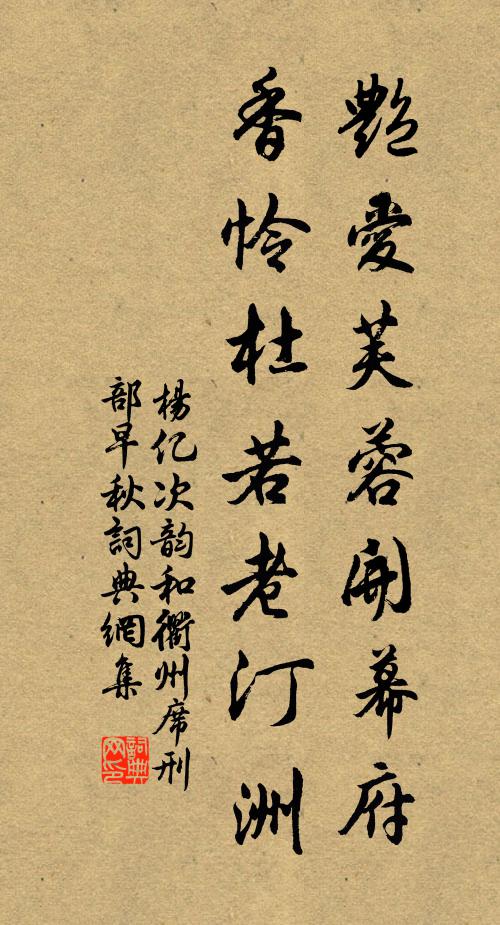 艶愛芙蓉開幕府
香怜杜若老汀洲
楊億次韵和衢州席刑
部早秋詞典網集
詞典网印